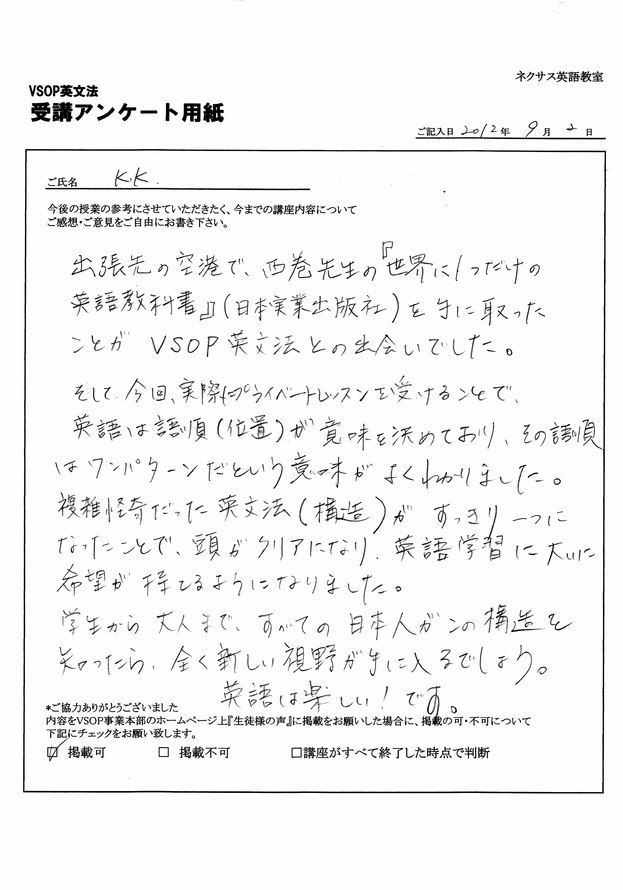 ネクサス英語教室
VSOP英文法
受講アンケート用紙
ご記入日 2012年 9月 2日
ご氏名 K.K.
今後の授業の参考にさせていただきたく、今までの講座内容について
ご感想・ご意見をご自由にお書き下さい。
出張先の空港で、西巻先生の『世界に1つだけの
英語教科書』(日本実業出版社)を手に取った
ことが VSOP英文法との出会いでした。
そして、今回、実際にプライベートレッスンを受けることで、
英語は語順(位置)が意味を決めており、その語順
はワンパターンだという意味がよくわかりました。
複雑怪奇だった英文法(構造)が すっきり一つに
なったことで、頭がクリアになり、英語学習に大いに
希望が持てるようになりました。
学生から大人まで、すべての日本人がこの構造を
知ったら、全く新しい視野が手に入るでしょう。
英語は楽しい!です。
*ご協力ありがとうございました
内容をVSOP事業本部のホームページ上『生徒様の声』に掲載をお願いした場合に、掲載の可・不可について
下記にチェックをお願い致します。
☑ 掲載可 □ 掲載不可 □講座がすべて終了した時点で判断